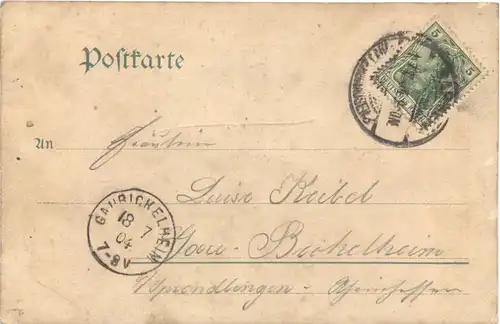 Postkarte
5 5
An Fräulein
Luise Keibel
Gau-Bickelheim
Sprendlingen - Rheinhessen
GAUBICKELHEIM
18 7
04
7-8V